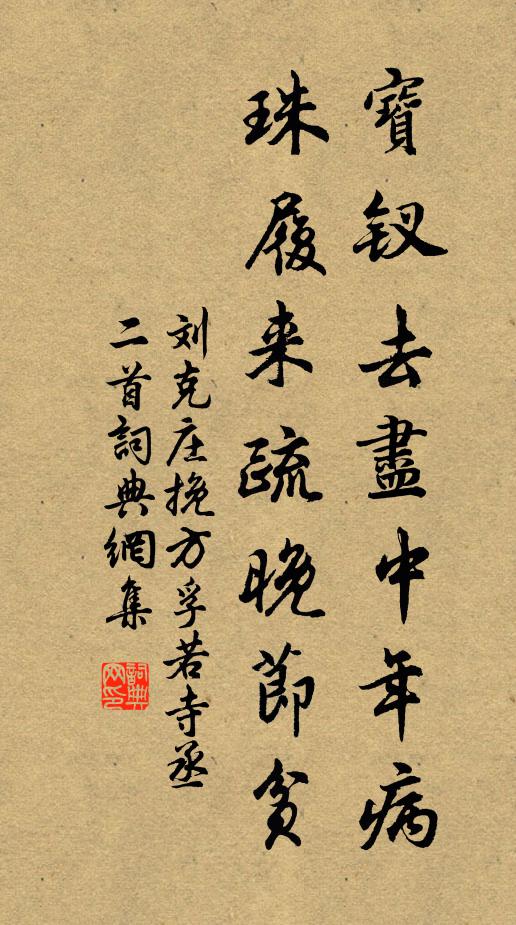 寶釵去盡中年病
珠履来疏晚節貧
刘克庄挽方孚若寺丞
二首詞典網集
詞典
网印